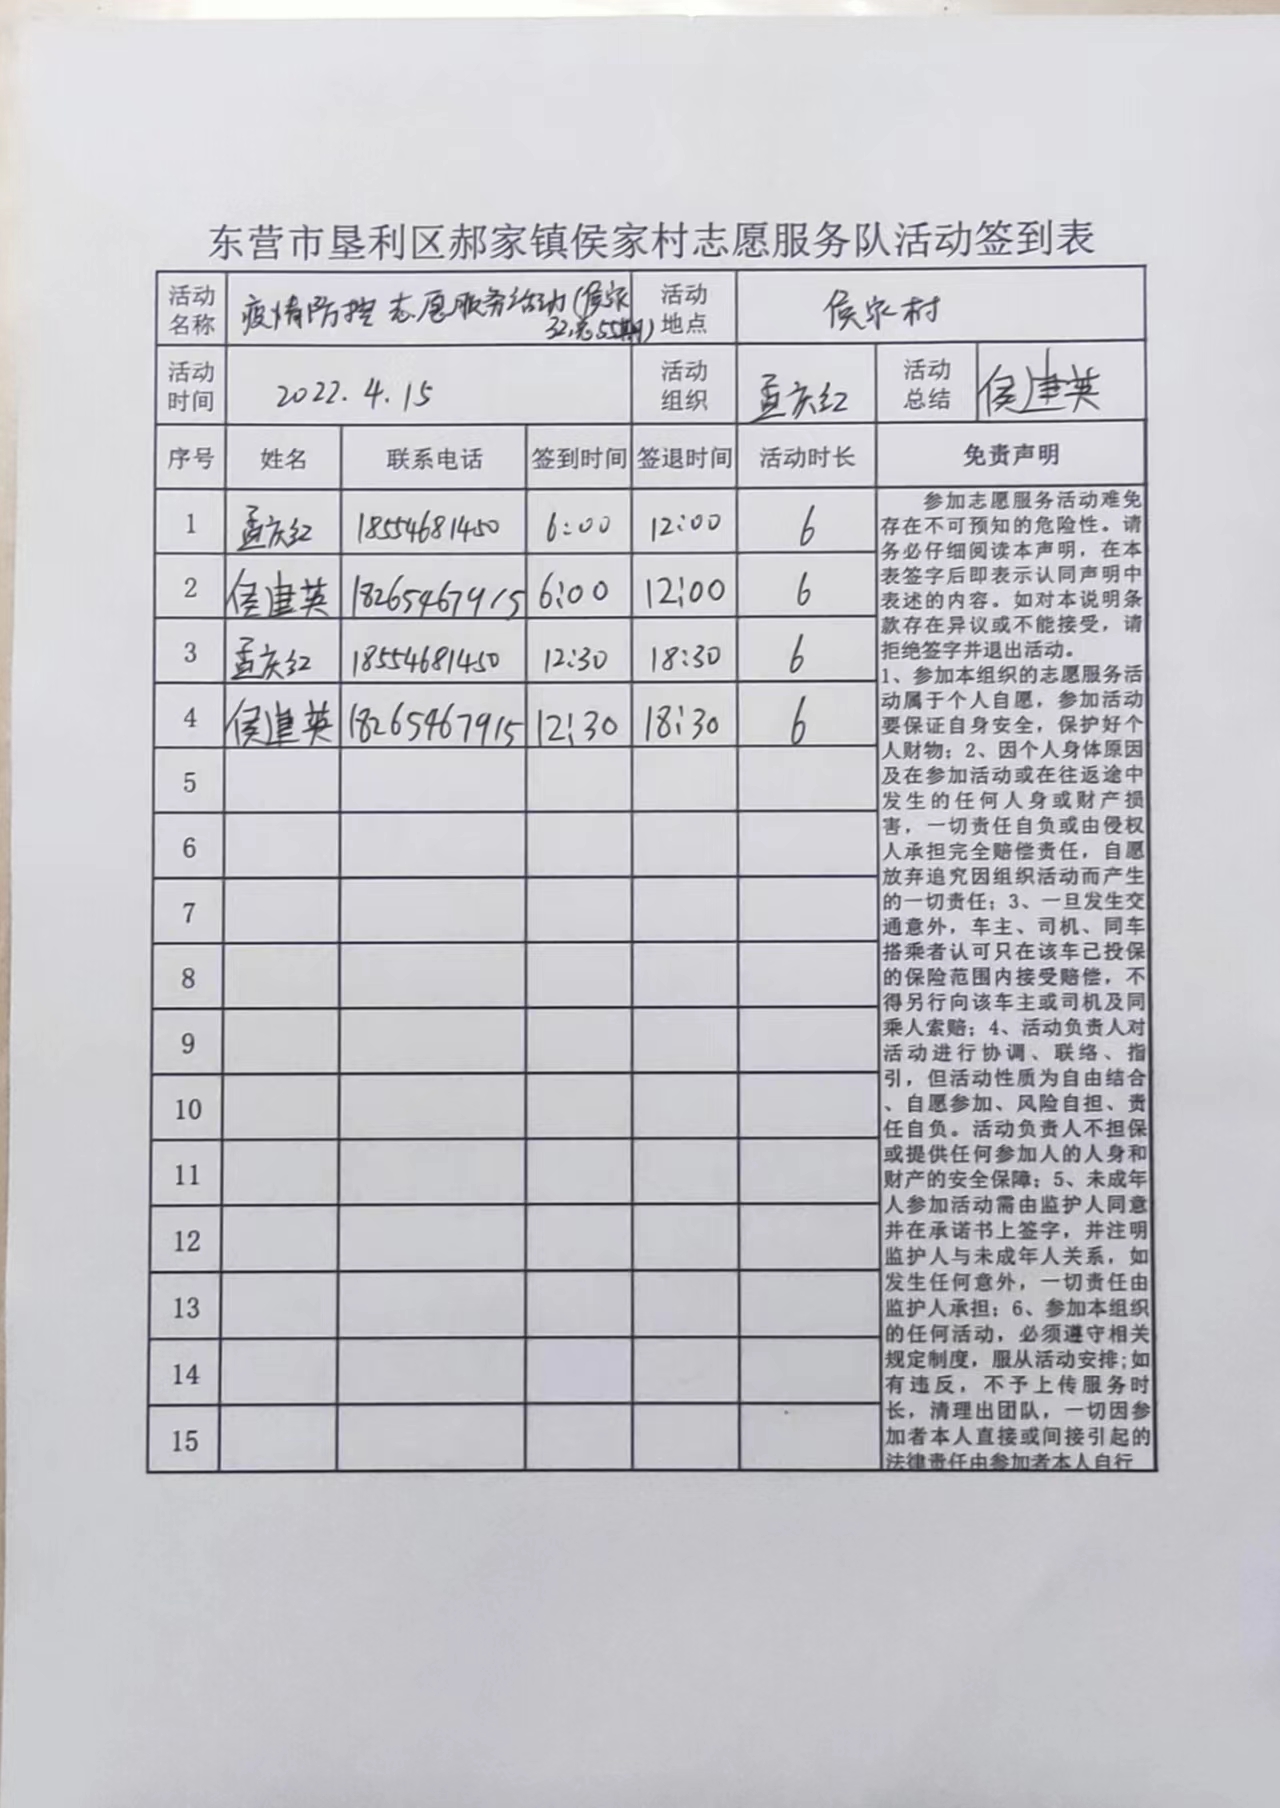 东营市垦利区郝家镇侯家村志愿服务队活动签到表
活动名称 疫情防控志愿服务活动(侯家32总55期) 活动地点 侯家村
活动时间 2022.4.15 活动组织 孟庆红 活动总结 侯建英
序号 姓名 联系电话 签到时间 签退时间 活动时长 免责声明
1 孟庆红 18554681450 6:00 12:00 6
2 侯建英 18265467915 6:00 12:00 6
3 孟庆红 18554681450 12:30 18:30 6
4 侯建英 18265467915 12:30 18:30 6
5
6
7
8
9
10
11
12
13
14
15
参加志愿服务活动难免
存在不可预知的危险性。请
务必仔细阅读本声明，在本
表签字后即表示认同声明中
表述的内容。如对本说明条
款存在异议或不能接受，请
拒绝签字并退出活动。
1、参加本组织的志愿服务活
动属于个人自愿，参加活动
要保证自身安全，保护好个
人财物；2、因个人身体原因
及在参加活动或在往返途中
发生的任何人身或财产损
害，一切责任自负或由侵权
人承担完全赔偿责任，自愿
放弃追究因组织活动而产生
的一切责任；3、一旦发生交
通意外，车主、司机、同车
搭乘者认可只在该车已投保
的保险范围内接受赔偿，不
得另行向该车主或司机及同
乘人索赔；4、活动负责人对
活动进行协调、联络、指
引，但活动性质为自由结合
、自愿参加、风险自担、责
任自负。活动负责人不担保
或提供任何参加人的人身和
财产的安全保障；5、未成年
人参加活动需由监护人同意
并在承诺书上签字，并注明
监护人与未成年人关系，如
发生任何意外，一切责任由
监护人承担；6、参加本组织
的任何活动，必须遵守相关
规定制度，服从活动安排;如
有违反，不予上传服务时
长，清理出团队，一切因参
加者本人直接或间接引起的
法律责任由参加者本人自行